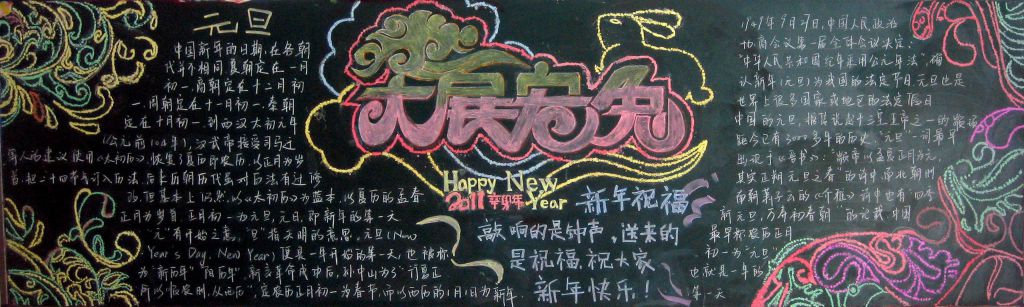 元旦
中国新年的日期,在各朝
代并不相同,夏朝定在一月
初一,商朝定在十二月初
一,周朝定在十一月初一,秦朝
定在十月初一,到西汉太初元年
(公元前104年),汉武帝接受司马迁
等人的建议使用《太初历》,恢复了夏历即农历,以正月为岁
首,把二十四节气订入历法,后来历朝历代虽对历法有过修
改,但基本上仍然以《太初历》为蓝本,以夏历的孟春
正月为岁首,正月初一为元旦,元日,即新年的第一天
元"有开始之意,"旦"指天明的意思。元旦(New
Year's Day, New Year)便是一年开始的第一天,也被称
为"新历年""阳历年"。新亥革命成功后,孙中山为了"行夏正
所以顺农时,从西历",定农历正月初一为春节,而以西历的1月1日为新年
大展宏兔
Happy New
2011辛卯年 Year
新年祝福
敲响的是钟声,送来的
是祝福,祝大家
新年快乐!
1949年9月27日,中国人民政治
协商会议第一届全体会议决定:
"中华人民共和国纪年采用公元年法",确
认新年1月1日为我国的法定节日。元旦也是
世界上很多国家或地区的法定假日
中国的元旦,据传说起于三皇五帝之一的颛顼
距今已有3000多年的历史。"元旦"一词最早
出现于《晋书》:"颛帝以孟夏正月为元,
其实正朔元旦之春"的诗中。南北朝时
南朝萧子云的《介雅》诗中也有"四季
新元旦,万寿初春朝"的记载。中国
最早称农历正月
初一为"元旦"
也就是一年的
第一天